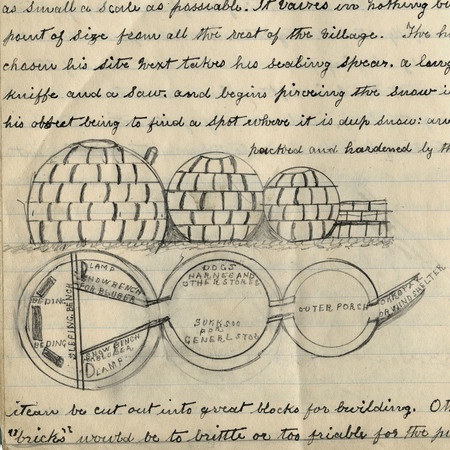 as small a scale as possiable. It varies in nothing
point of size from all the rest of the village. The
chosen his site next takes his sealing spear. a long
kniffe and a saw. and begins pirceing the snow
his obect being to find a spot where it is deep snow:
packed and hardened by
LAMP
SNOW BENCH
FOR BLUBBER
BEDING
SLEEPING BENCH
BEDING
SNOW BENCH
BLUBBER
LAMP
DOGS
HARNES AND
OTHER STORES
SUKSOO
OR
GENERL STOR
OUTER PORCH
OR WIND SHELTER
itcan be cut out into great blocks for bwilding.
"bricks" would be to brittle or too friable for the